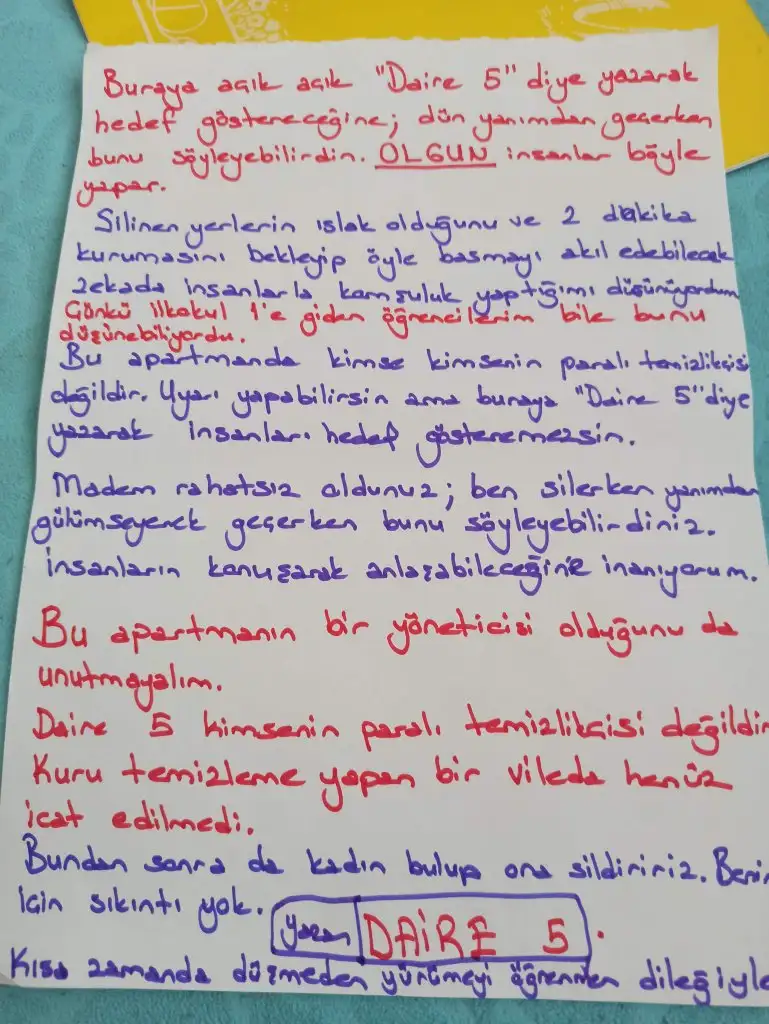 Buraya açık açık "Daire 5" diye yazarak
hedef göstereceğine; dün yanımdan geçerken
bunu söyleyebilirdin. OLGUN insanlar böyle
yapar.
Silinen yerlerin ıslak olduğunu ve 2 dakika
kurumasını bekleyip öyle basmayı akıl edebilecek
zekada insanlarla komşuluk yaptığımı düşünüyordum
Çünkü ilkokul 1'e giden öğrencilerim bile bunu
düşünebiliyordu.
Bu apartmanda kimse kimsenin paralı temizlikçisi
değildir. Uyarı yapabilirsin ama buraya "Daire 5" diye
yazarak insanları hedef gösteremezsin.
Madem rahatsız oldunuz; ben silerken yanımdan
gülümseyerek geçerken bunu söyleyebilirdiniz.
İnsanların konuşarak anlaşabileceğine inanıyorum.
Bu apartmanın bir yöneticisi olduğunu da
unutmayalım.
Daire 5 kimsenin paralı temizlikçisi değildir
Kuru temizleme yapan bir vileda henüz
icat edilmedi.
Bundan sonra da kadın bulup ona sildiririz. Benim
için sıkıntı yok. yazan DAİRE 5.
Kısa zamanda düşmeden yürümeyi öğrenmen dileğiyle